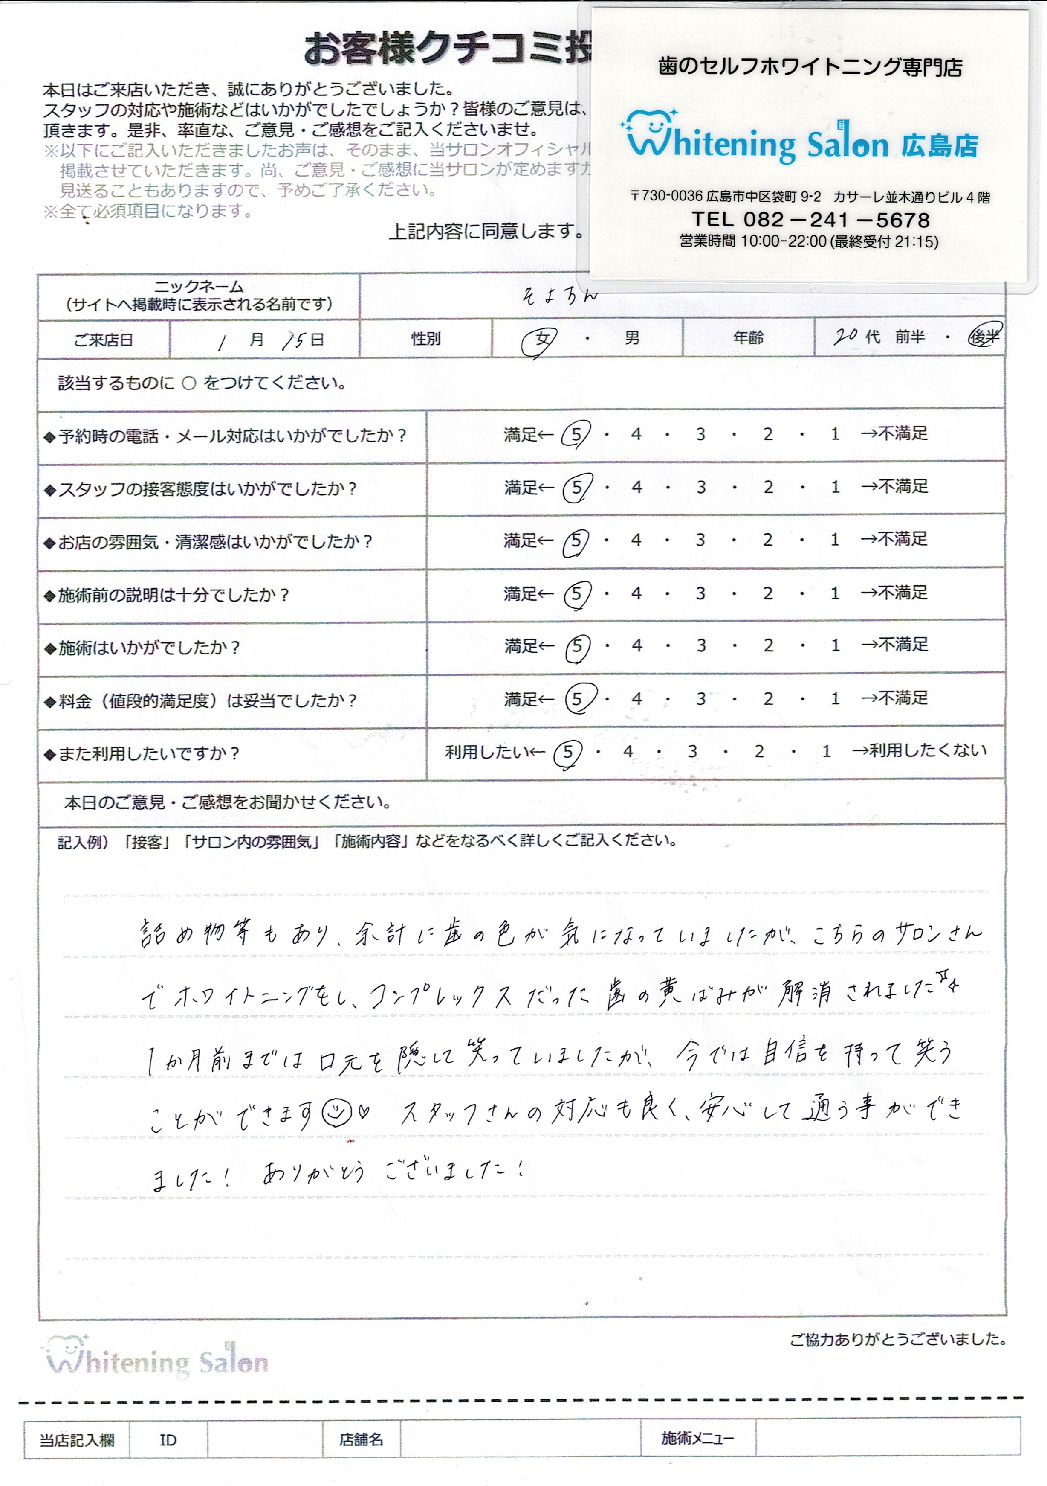 お客様クチコミ投
本日はご来店いただき、誠にありがとうございました。
スタッフの対応や施術などはいかがでしたでしょうか？皆様のご意見は、
頂きます。是非、率直な、ご意見・ご感想をご記入くださいませ。
※以下にご記入いただきましたお声は、そのまま、当サロンオフィシャル
掲載させていただきます。尚、ご意見・ご感想に当サロンが定めますガ
見送ることもありますので、予めご了承ください。
※全て必須項目になります。
上記内容に同意します。
歯のセルフホワイトニング専門店
Whitening Salon 広島店
〒730-0036 広島市中区袋町 9-2 カサーレ並木通りビル 4 階
TEL 082－241－5678
営業時間 10:00-22:00 (最終受付 21:15)
ニックネーム
（サイトへ掲載時に表示される名前です）
そよちん
ご来店日 1 月 15 日 性別 女 ・ 男 年齢 20 代 前半 ・ 後半
該当するものに ○ をつけてください。
◆予約時の電話・メール対応はいかがでしたか？ 満足← 5 ・ 4 ・ 3 ・ 2 ・ 1 →不満足
◆スタッフの接客態度はいかがでしたか？ 満足← 5 ・ 4 ・ 3 ・ 2 ・ 1 →不満足
◆お店の雰囲気・清潔感はいかがでしたか？ 満足← 5 ・ 4 ・ 3 ・ 2 ・ 1 →不満足
◆施術前の説明は十分でしたか？ 満足← 5 ・ 4 ・ 3 ・ 2 ・ 1 →不満足
◆施術はいかがでしたか？ 満足← 5 ・ 4 ・ 3 ・ 2 ・ 1 →不満足
◆料金（値段的満足度）は妥当でしたか？ 満足← 5 ・ 4 ・ 3 ・ 2 ・ 1 →不満足
◆また利用したいですか？ 利用したい← 5 ・ 4 ・ 3 ・ 2 ・ 1 →利用したくない
本日のご意見・ご感想をお聞かせください。
記入例）「接客」「サロン内の雰囲気」「施術内容」などをなるべく詳しくご記入ください。
詰め物等もあり、余計に歯の色が気になっていましたが、こちらのサロンさん
でホワイトニングをし、コンプレックスだった歯の黄ばみが解消されました☆
1か月前までは口元を隠して笑っていましたが、今では自信を持って笑う
ことができます☺♡ スタッフさんの対応も良く、安心して通う事ができ
ました！ ありがとうございました！
ご協力ありがとうございました。
Whitening Salon
当店記入欄 ID 店舗名 施術メニュー